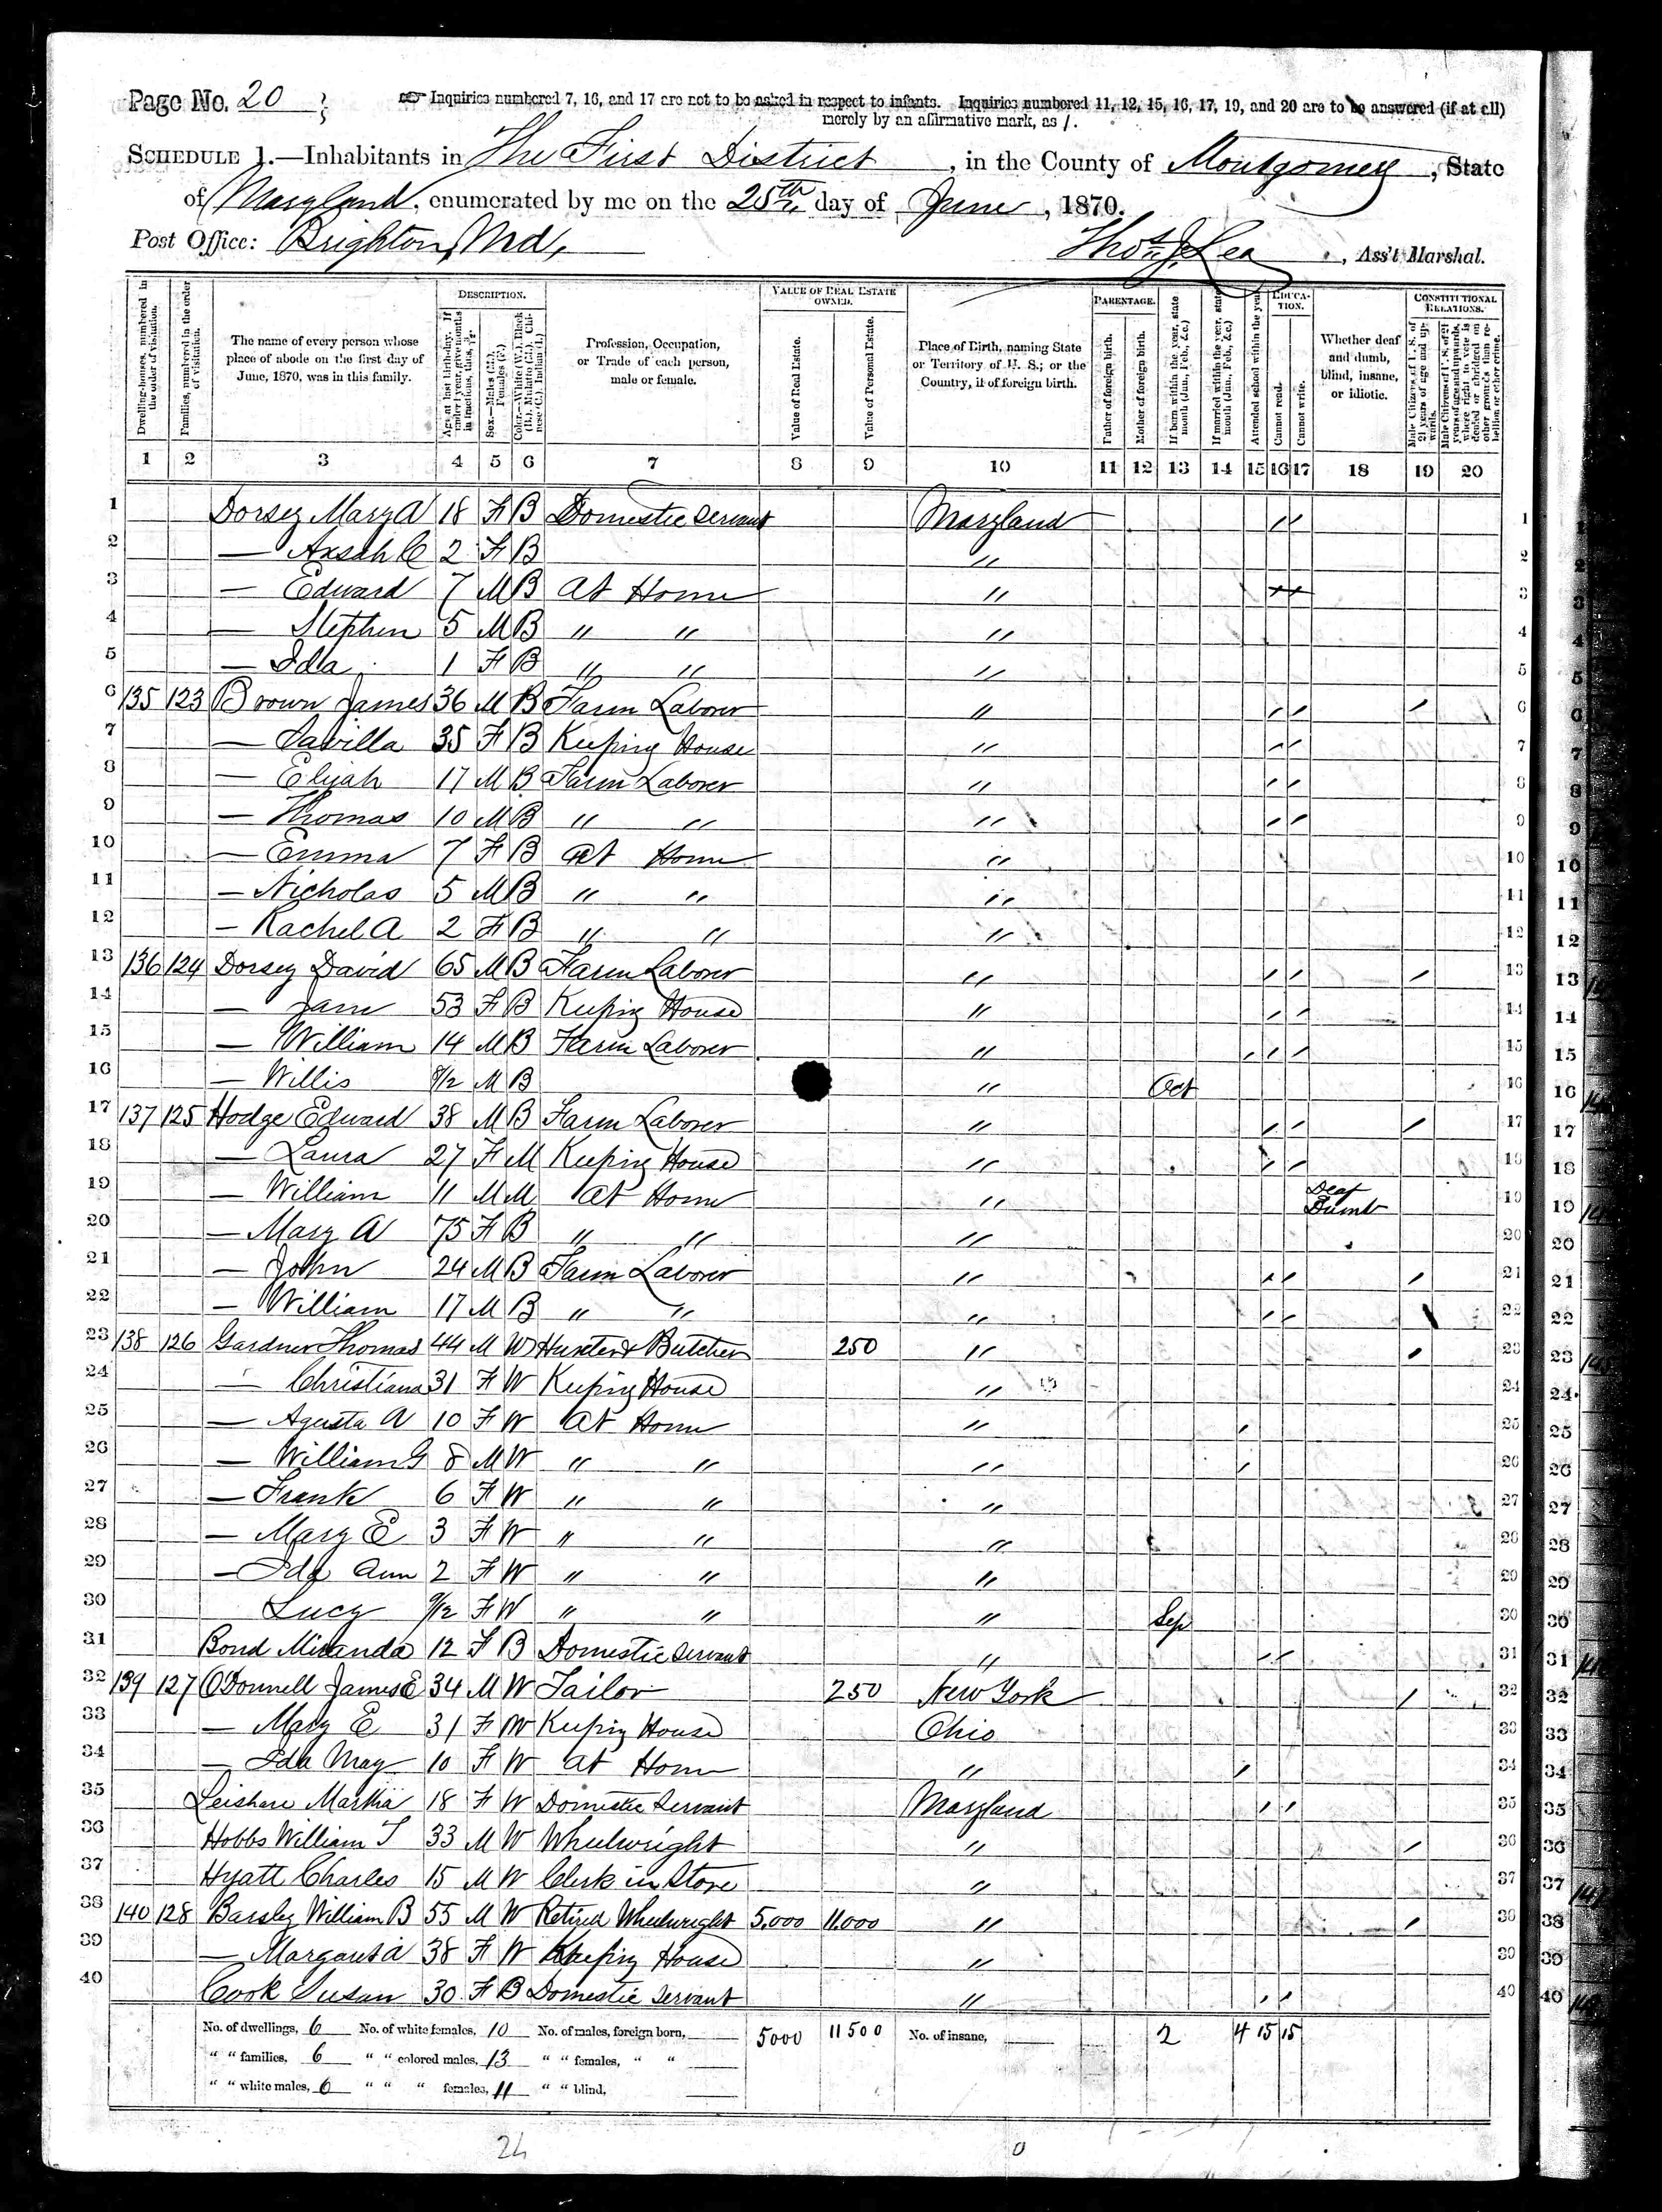 Page No. 20
Inquiries numbered 7, 16, and 17 are not to be asked in respect to infants. Inquiries numbered 11, 12, 15, 16, 17, 19, and 20 are to be answered (if at all)
merely by an affirmative mark, as /.
SCHEDULE 1.—Inhabitants in The First District, in the County of Montgomery, State
of Maryland, enumerated by me on the 25th day of June, 1870.
Post Office: Brighton, Md,
Thos. J. Lea, Ass't Marshal.
Dwelling-houses, numbered in the order of visitation.
Families, numbered in the order of visitation.
The name of every person whose place of abode on the first day of June, 1870, was in this family.
DESCRIPTION.
Age at last birth-day. If under 1 year, give months in fractions, thus, 3/12.
Sex.—Males (M.), Females (F.)
Color.—White (W.), Black (B.), Mulatto (M.), Chinese (C.), Indian (I.)
Profession, Occupation, or Trade of each person, male or female.
VALUE OF REAL ESTATE OWNED.
Value of Real Estate.
Value of Personal Estate.
Place of Birth, naming State or Territory of U. S.; or the Country, if of foreign birth.
PARENTAGE.
Father of foreign birth.
Mother of foreign birth.
If born within the year, state month (Jan., Feb., &c.)
If married within the year, state month (Jan., Feb., &c.)
Attended school within the year.
EDUCATION.
Cannot read.
Cannot write.
Whether deaf and dumb, blind, insane, or idiotic.
CONSTITUTIONAL RELATIONS.
Male Citizens of U. S. of 21 years of age and upwards.
Male Citizens of U. S. of 21 years of age and upwards, where right to vote is denied or abridged on other grounds than rebellion or other crime.
1 2 3 4 5 6 7 8 9 10 11 12 13 14 15 16 17 18 19 20
1 Dorsey Mary A 18 F B Domestic Servant Maryland / / 1
2 — Axsah C 2 F B " 2
3 — Edward 7 M B At Home " 3
4 — Stephen 5 M B " " " 4
5 — Ida 1 F B " " " 5
6 135 123 Brown James 36 M B Farm Laborer " / / / 6
7 — Savilla 35 F B Keeping House " / / 7
8 — Elijah 17 M B Farm Laborer " / / 8
9 — Thomas 10 M B " " " / / 9
10 — Emma 7 F B At Home " 10
11 — Nicholas 5 M B " " " 11
12 — Rachel A 2 F B " " " 12
13 136 124 Dorsey David 65 M B Farm Laborer " / / / 13
14 — Jane 53 F B Keeping House " / / 14
15 — William 14 M B Farm Laborer " / / / 15
16 — Willis 8/12 M B " Oct 16
17 137 125 Hodge Edward 38 M B Farm Laborer " / / / 17
18 — Laura 27 F M Keeping House " / / 18
19 — William 11 M M At Home " Deaf Dumb 19
20 — Mary A 75 F B " " " 20
21 — John 24 M B Farm Laborer " / / / 21
22 — William 17 M B " " " / / 22
23 138 126 Gardner Thomas 44 M W Huxter & Butcher 250 " / 23
24 — Christiana 31 F W Keeping House " 24
25 — Agusta A 10 F W At Home " / 25
26 — William G 8 M W " " " / 26
27 — Frank 6 F W " " " 27
28 — Mary E 3 F W " " " 28
29 — Ida Ann 2 F W " " " 29
30 Lucy 9/12 F W " " " Sep 30
31 Bond Miranda 12 F B Domestic Servant " / / 31
32 139 127 O'Donnell James E 34 M W Tailor 250 New York / 32
33 — Mary E 31 F W Keeping House Ohio 33
34 — Ida May 10 F W At Home " / 34
35 Martha 18 F W Domestic Servant Maryland / / 35
36 Hobbs William T 33 M W Wheelwright " / 36
37 Hyatt Charles 15 M W Clerk in Store " 37
38 140 128 William B 55 M W Retired Wheelwright 5,000 11,000 " / 38
39 — Margaret A 38 F W Keeping House " 39
40 Cook Susan 30 F B Domestic Servant " / / 40
No. of dwellings, 6 No. of white females, 10 No. of males, foreign born, 5000 11500 No. of insane, 2 4 15 15
" " families, 6 " " colored males, 13 " " females, " "
" " white males, 6 " " " females, 11 " " blind,
24 0